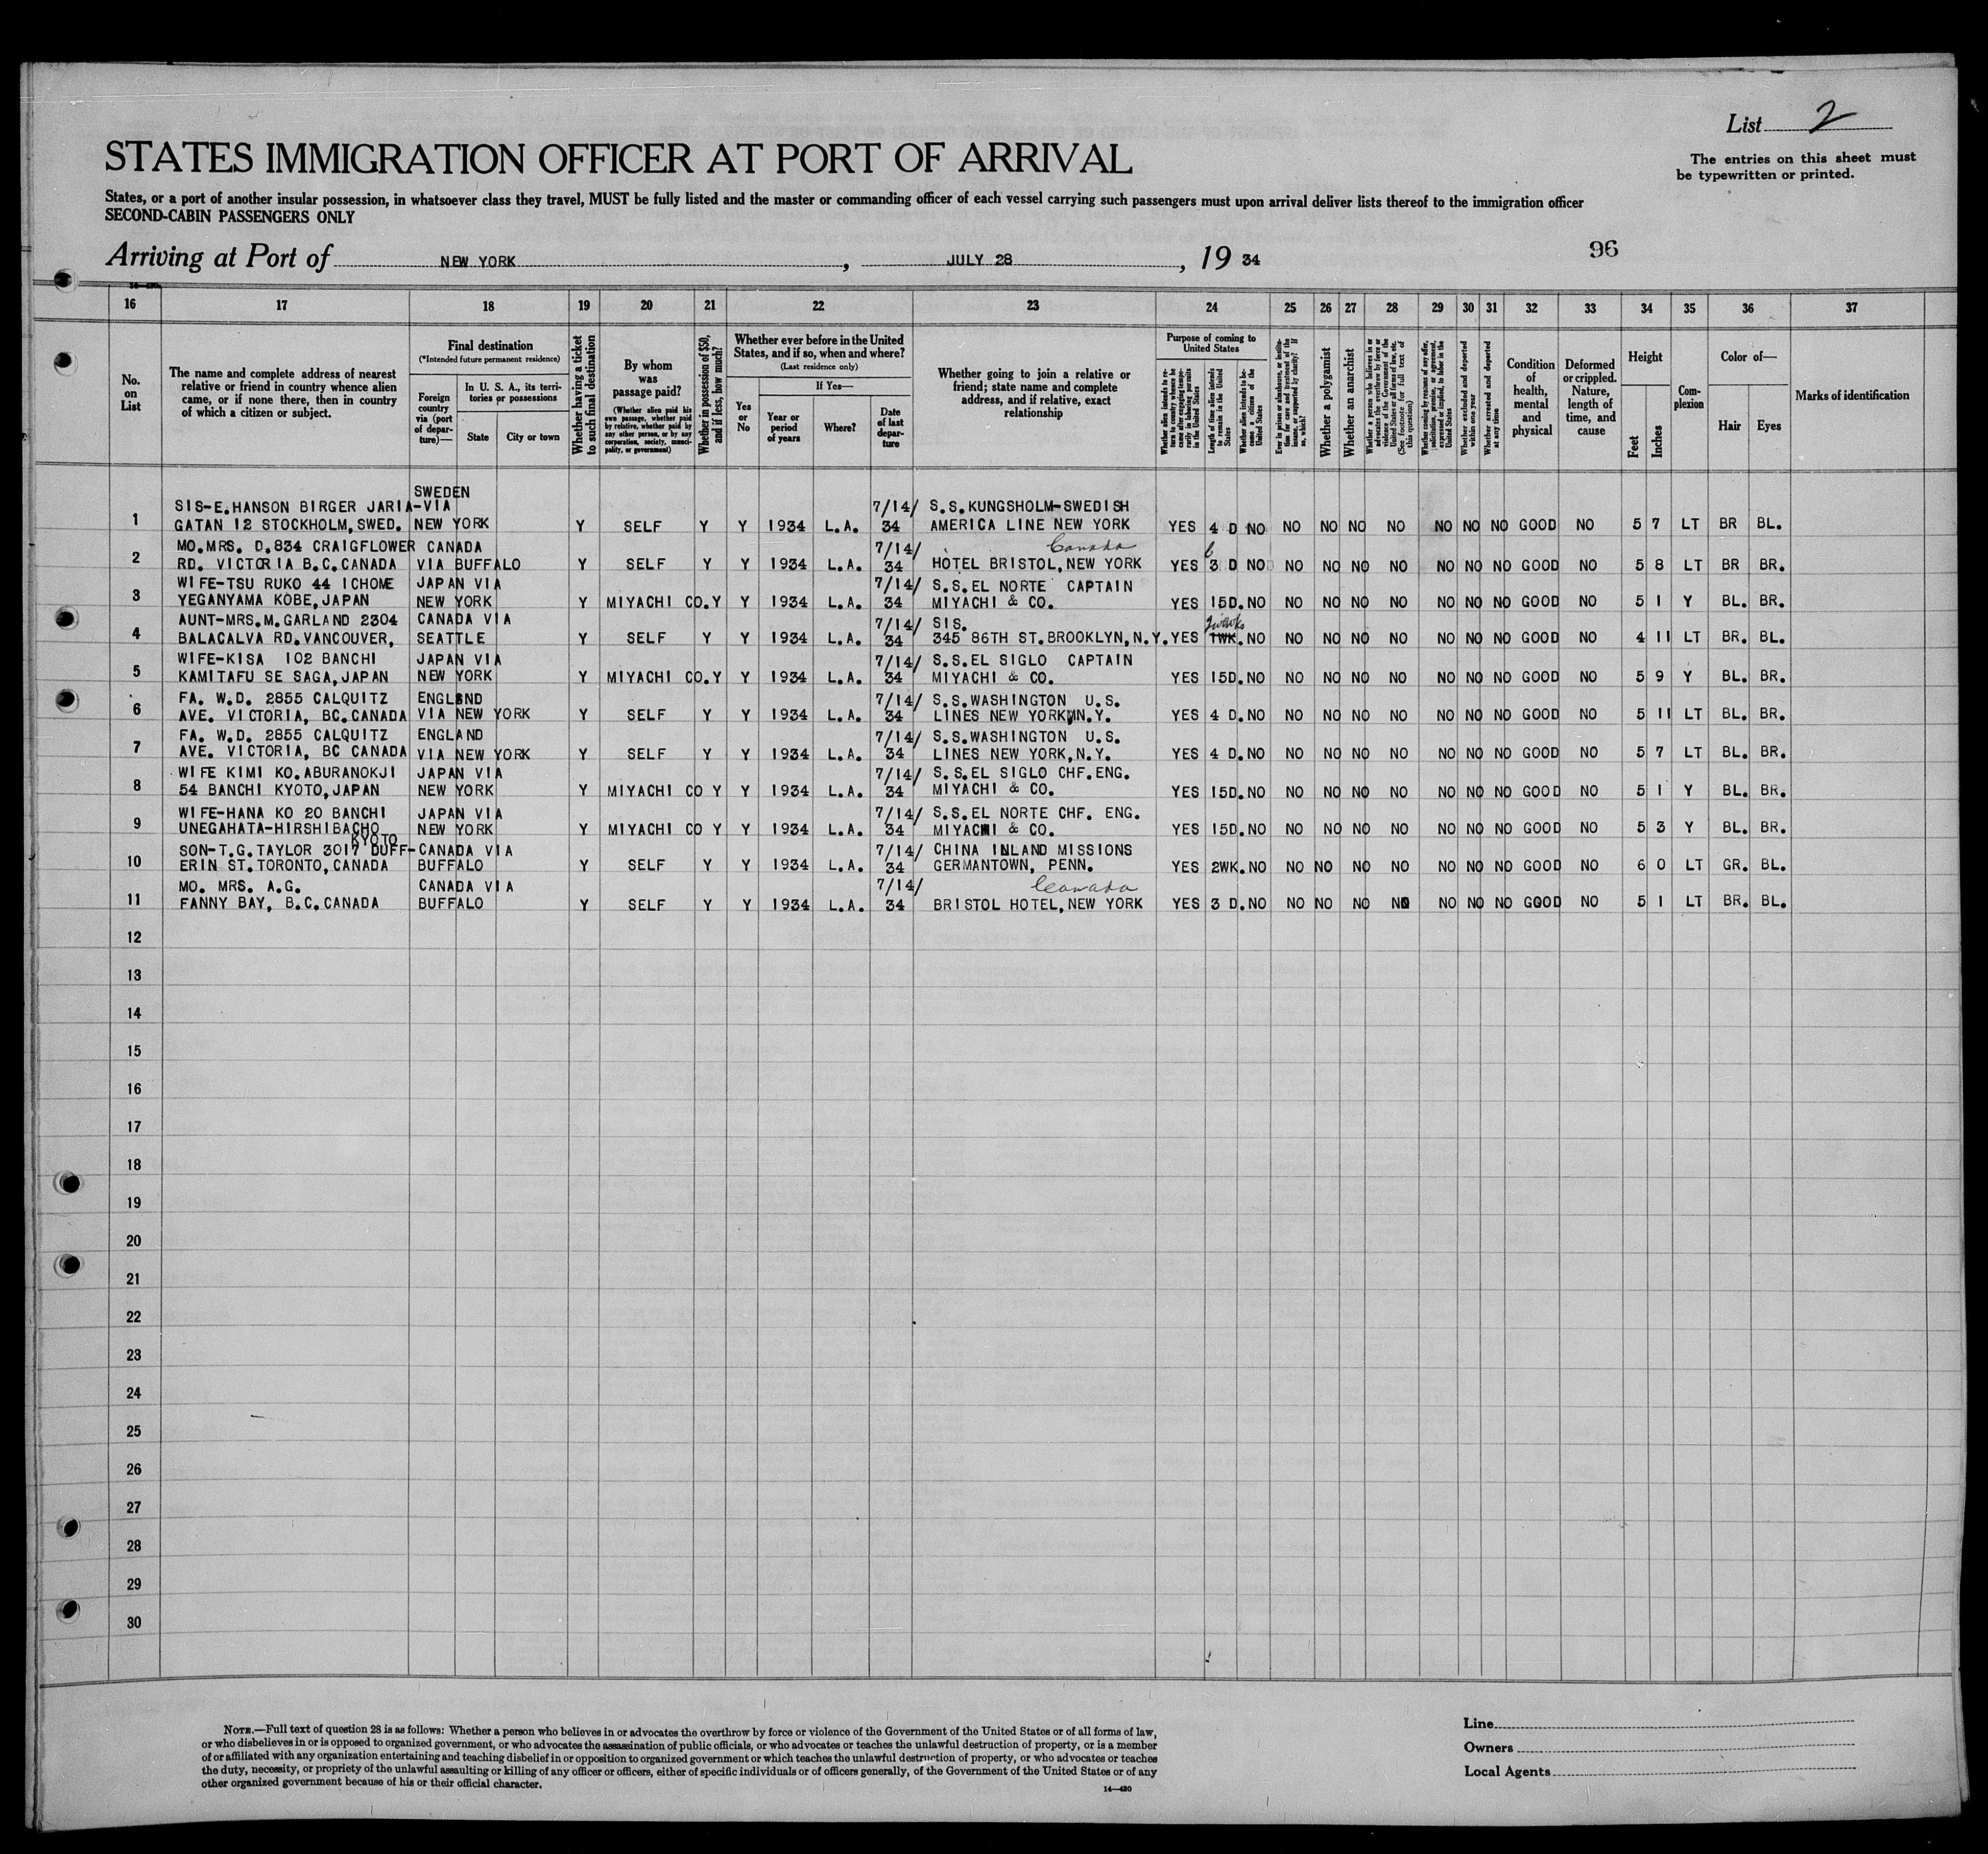 List 2
The entries on this sheet must
be typewritten or printed.
STATES IMMIGRATION OFFICER AT PORT OF ARRIVAL
States, or a port of another insular possession, in whatsoever class they travel, MUST be fully listed and the master or commanding officer of each vessel carrying such passengers must upon arrival deliver lists thereof to the immigration officer
SECOND-CABIN PASSENGERS ONLY
Arriving at Port of NEW YORK, JULY 28, 19 34
96
16 17 18 19 20 21 22 23 24 25 26 27 28 29 30 31 32 33 34 35 36 37
No.
on
List
The name and complete address of nearest
relative or friend in country whence alien
came, or if none there, then in country
of which a citizen or subject.
Final destination
(*Intended future permanent residence)
Foreign
country
via (port
of depar-
ture)—
In U. S. A., its terri-
tories or possessions
State
City or town
Whether having a ticket
to such final destination
By whom
was
passage paid?
(Whether alien paid his
own passage, whether paid
by relative, whether paid by
any other person, or by any
corporation, society, munici-
pality, or government)
Whether in possession of $50,
and if less, how much?
Whether ever before in the United
States, and if so, when and where?
(Last residence only)
Yes
or
No
If Yes—
Year or
period
of years
Where?
Date
of last
depar-
ture
Whether going to join a relative or
friend; state name and complete
address, and if relative, exact
relationship
Purpose of coming to
United States
Whether alien intends to re-
turn to country whence he
came after engaging tempo-
rarily in laboring pursuits
in the United States
Length of time alien intends
to remain in the United
States
Whether alien intends to be-
come a citizen of the
United States
Ever in prison or almshouse, or institu-
tion for care and treatment of the
insane, or supported by charity? If
so, which?
Whether a polygamist
Whether an anarchist
Whether a person who believes in or
advocates the overthrow by force or
violence of the Government of the
United States or all forms of law, etc.
(See footnote for full text of
this question)
Whether coming by reasons of any offer,
solicitation, promise, or agreement,
expressed or implied, to labor in the
United States
Whether excluded and deported
within one year
Whether arrested and deported
at any time
Condition
of
health,
mental
and
physical
Deformed
or crippled.
Nature,
length of
time, and
cause
Height
Feet
Inches
Com-
plexion
Color of—
Hair
Eyes
Marks of identification
SWEDEN
SIS-E.HANSON BIRGER JARIA-VIA 7/14/ S.S.KUNGSHOLM-SWEDISH
1 GATAN 12 STOCKHOLM, SWED. NEW YORK Y SELF Y Y 1934 L.A. 34 AMERICA LINE NEW YORK YES 4 D NO NO NO NO NO NO NO NO GOOD NO 5 7 LT BR BL.
MO.MRS. D.834 CRAIGFLOWER CANADA 7/14/ Canada 6
2 RD. VICTORIA B.C.CANADA VIA BUFFALO Y SELF Y Y 1934 L.A. 34 HOTEL BRISTOL, NEW YORK YES 3 D NO NO NO NO NO NO NO NO GOOD NO 5 8 LT BR BR.
WIFE-TSU RUKO 44 ICHOME JAPAN VIA 7/14/ S.S.EL NORTE CAPTAIN
3 YEGANYAMA KOBE, JAPAN NEW YORK Y MIYACHI CO. Y Y 1934 L.A. 34 MIYACHI & CO. YES 15D. NO NO NO NO NO NO NO NO GOOD NO 5 1 Y BL. BR.
AUNT-MRS.M.GARLAND 2304 CANADA VIA 7/14/ SIS. 2 weeks
4 BALACALVA RD.VANCOUVER, SEATTLE Y SELF Y Y 1934 L.A. 34 345 86TH ST.BROOKLYN, N.Y. YES 1WK. NO NO NO NO NO NO NO NO GOOD NO 4 11 LT BR. BL.
WIFE-KISA 102 BANCHI JAPAN VIA 7/14/ S.S.EL SIGLO CAPTAIN
5 KAMITAFU SE SAGA, JAPAN NEW YORK Y MIYACHI CO. Y Y 1934 L.A. 34 MIYACHI & CO. YES 15D. NO NO NO NO NO NO NO NO GOOD NO 5 9 Y BL. BR.
FA. W.D. 2855 CALQUITZ ENGLAND 7/14/ S.S.WASHINGTON U.S.
6 AVE. VICTORIA, BC.CANADA VIA NEW YORK Y SELF Y Y 1934 L.A. 34 LINES NEW YORK, N.Y. YES 4 D. NO NO NO NO NO NO NO NO GOOD NO 5 11 LT BL. BR.
FA. W.D. 2855 CALQUITZ ENGLAND 7/14/ S.S.WASHINGTON U.S.
7 AVE. VICTORIA, BC CANADA VIA NEW YORK Y SELF Y Y 1934 L.A. 34 LINES NEW YORK, N.Y. YES 4 D. NO NO NO NO NO NO NO NO GOOD NO 5 7 LT BL. BR.
WIFE KIMI KO.ABURANOKJI JAPAN VIA 7/14/ S.S.EL SIGLO CHF.ENG.
8 54 BANCHI KYOTO, JAPAN NEW YORK Y MIYACHI CO Y Y 1934 L.A. 34 MIYACHI & CO. YES 15D. NO NO NO NO NO NO NO NO GOOD NO 5 1 Y BL. BR.
WIFE-HANA KO 20 BANCHI JAPAN VIA 7/14/ S.S.EL NORTE CHF. ENG.
9 UNEGAHATA-HIRSHIBACHO NEW YORK Y MIYACHI CO Y Y 1934 L.A. 34 MIYACHI & CO. YES 15D. NO NO NO NO NO NO NO NO GOOD NO 5 3 Y BL. BR.
KYOTO
SON-T.G.TAYLOR 3017 DUFF-CANADA VIA 7/14/ CHINA INLAND MISSIONS
10 ERIN ST.TORONTO, CANADA BUFFALO Y SELF Y Y 1934 L.A. 34 GERMANTOWN, PENN. YES 2WK. NO NO NO NO NO NO NO NO GOOD NO 6 0 LT GR. BL.
MO. MRS. A.G. CANADA VIA 7/14/ Canada
11 FANNY BAY, B.C.CANADA BUFFALO Y SELF Y Y 1934 L.A. 34 BRISTOL HOTEL, NEW YORK YES 3 D. NO NO NO NO NO NO NO NO GOOD NO 5 1 LT BR. BL.
12
13
14
15
16
17
18
19
20
21
22
23
24
25
26
27
28
29
30
NOTE.—Full text of question 28 is as follows: Whether a person who believes in or advocates the overthrow by force or violence of the Government of the United States or of all forms of law,
or who disbelieves in or is opposed to organized government, or who advocates the assassination of public officials, or who advocates or teaches the unlawful destruction of property, or is a member
of or affiliated with any organization entertaining and teaching disbelief in or opposition to organized government or which teaches the unlawful destruction of property, or who advocates or teaches
the duty, necessity, or propriety of the unlawful assaulting or killing of any officer or officers, either of specific individuals or of officers generally, of the Government of the United States or of any
other organized government because of his or their official character.
14—430
Line
Owners
Local Agents